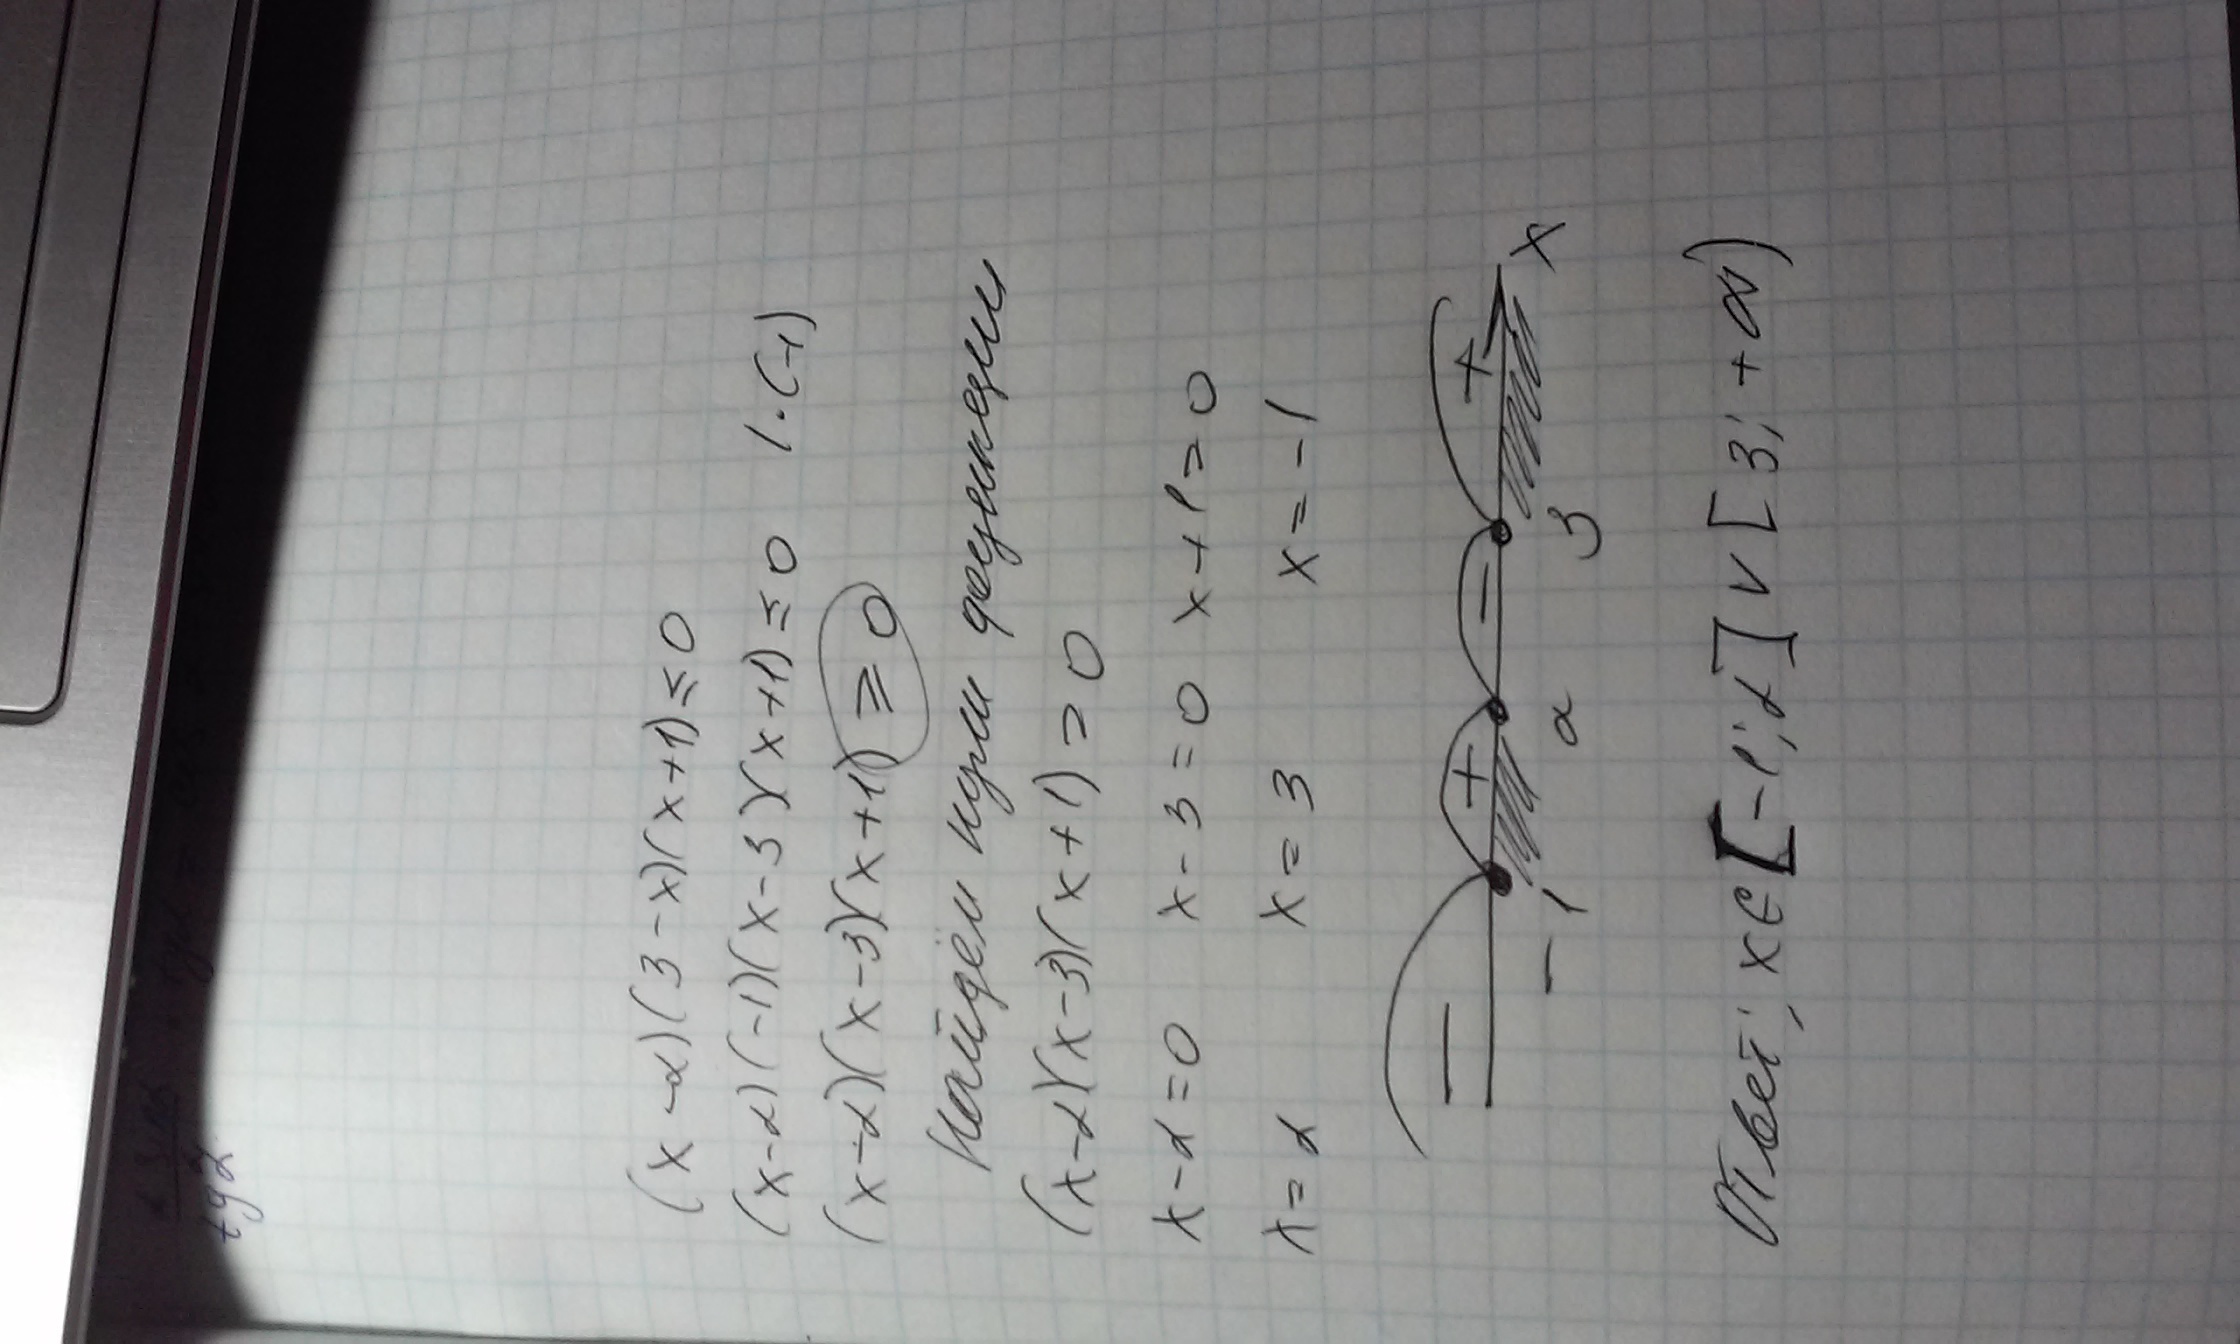 tg2
(x-2)(3-x)(x+1)≤0
(x-2)(-1)(x-3)(x+1)≤0 |·(-1)
(x-2)(x-3)(x+1)≥0
Найдём нули функции
(x-2)(x-3)(x+1)=0
x-2=0 x-3=0 x+1=0
x=2 x=3 x=-1
− + − +
-1 2 3 x
Ответ: x∈[-1;2]∨[3;+∞)